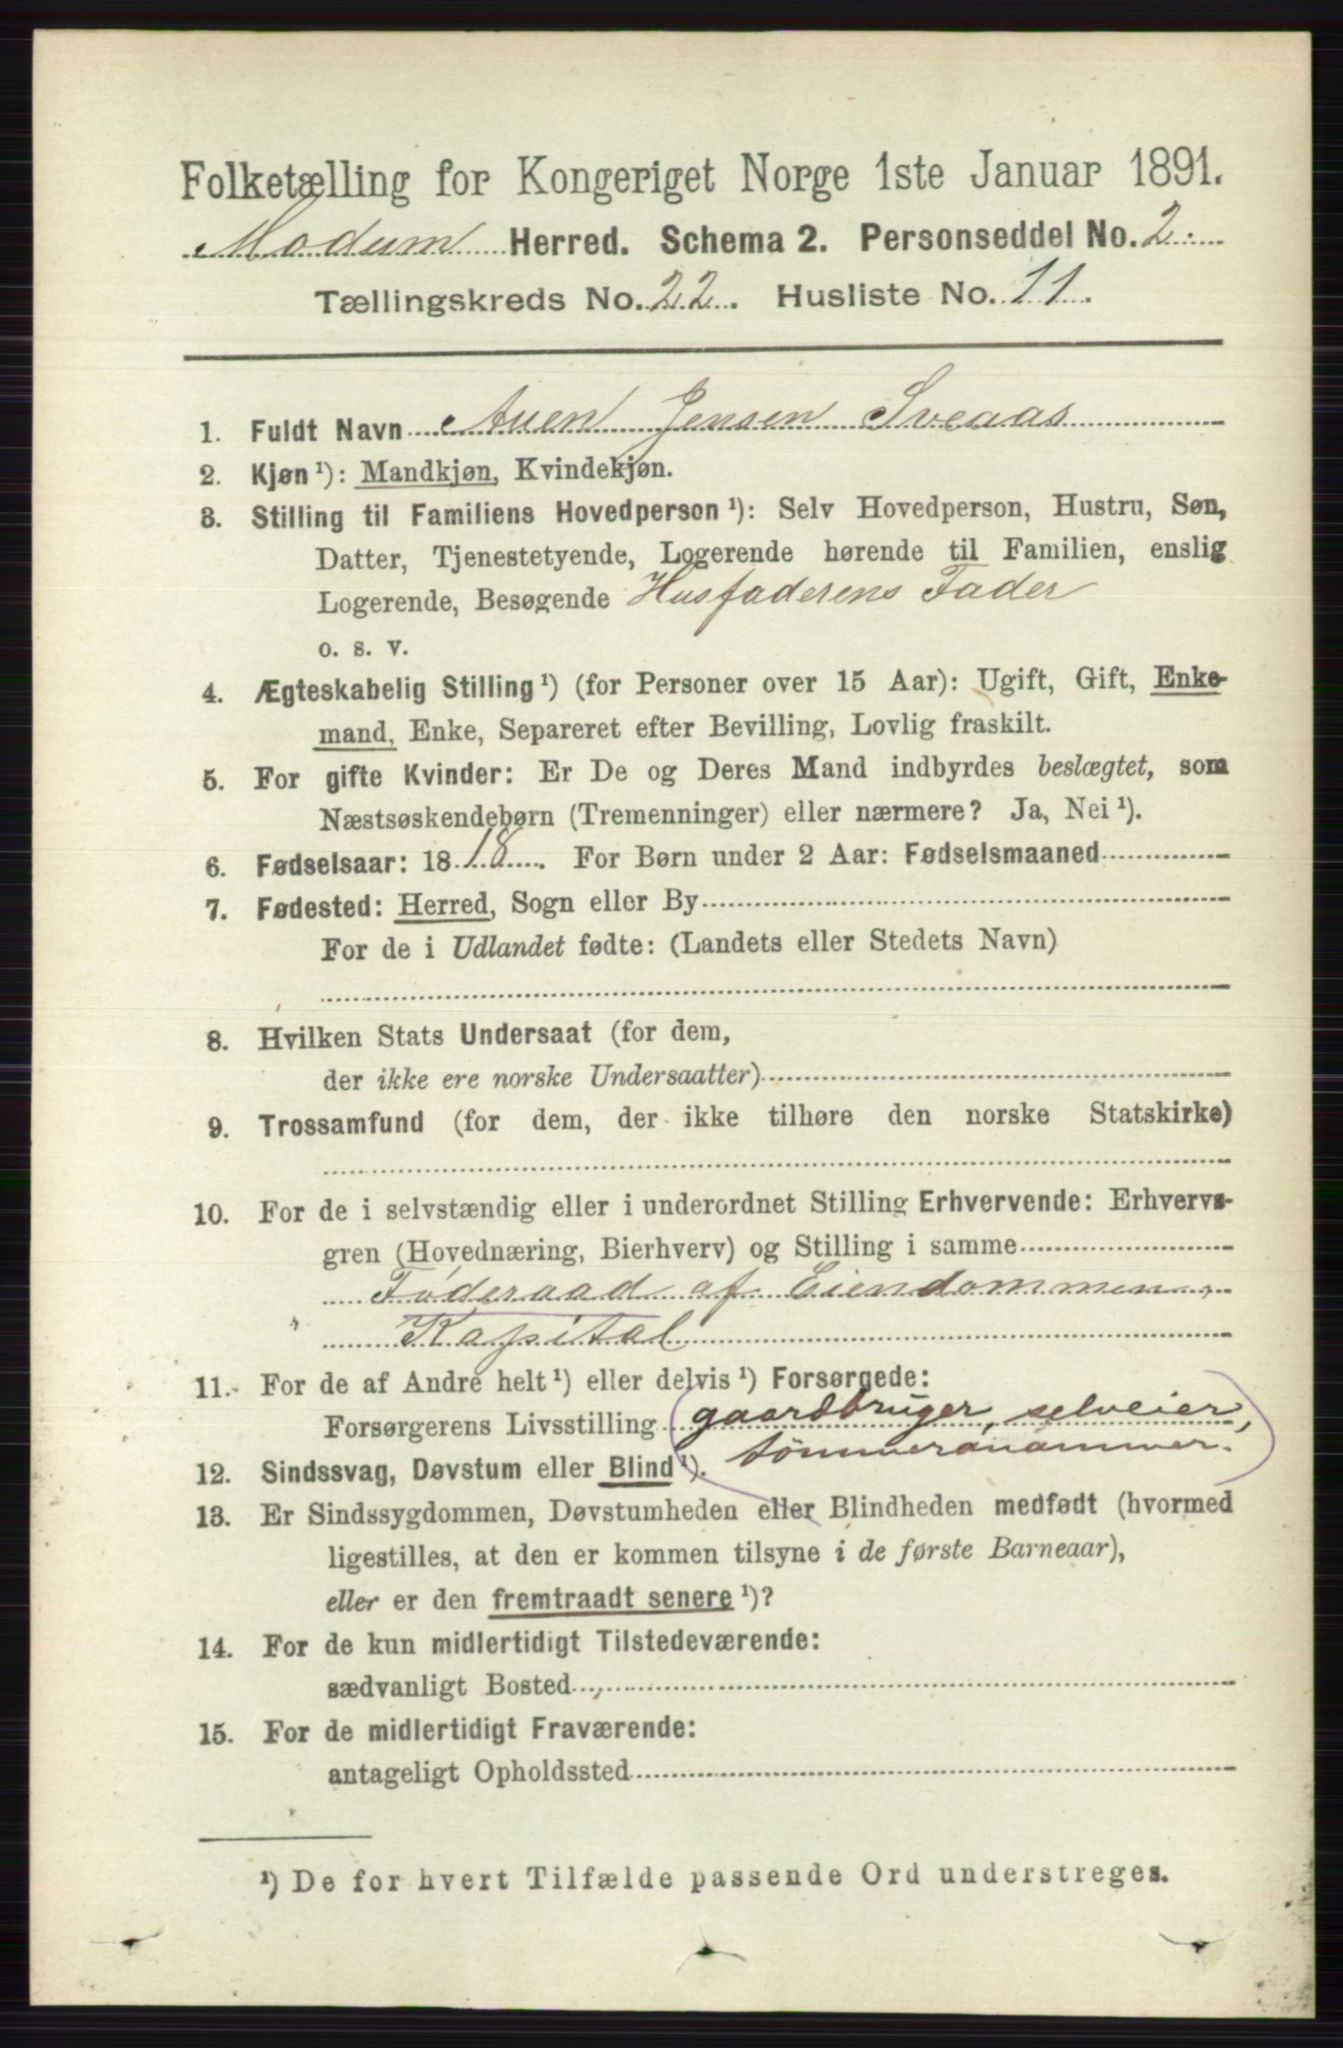 Folketælling for Kongeriget Norge 1ste Januar 1891.
Modum Herred. Schema 2. Personseddel No. 2.
Tællingskreds No. 22. Husliste No. 11.
1. Fuldt Navn Auen Jensen Sveaas
2. Kjøn ¹): Mandkjøn, Kvindekjøn.
3. Stilling til Familiens Hovedperson ¹): Selv Hovedperson, Hustru, Søn,
Datter, Tjenestetyende, Logerende hørende til Familien, enslig
Logerende, Besøgende Husfaderens Fader
o. s. v.
4. Ægteskabelig Stilling ¹) (for Personer over 15 Aar): Ugift, Gift, Enke-
mand, Enke, Separeret efter Bevilling, Lovlig fraskilt.
5. For gifte Kvinder: Er De og Deres Mand indbyrdes beslægtet, som
Næstsøskendebørn (Tremenninger) eller nærmere? Ja, Nei ¹).
6. Fødselsaar: 1818. For Børn under 2 Aar: Fødselsmaaned
7. Fødested: Herred, Sogn eller By
For de i Udlandet fødte: (Landets eller Stedets Navn)
8. Hvilken Stats Undersaat (for dem,
der ikke ere norske Undersaatter)
9. Trossamfund (for dem, der ikke tilhøre den norske Statskirke)
10. For de i selvstændig eller i underordnet Stilling Erhvervende: Erhvervs-
gren (Hovednæring, Bierhverv) og Stilling i samme
Føderaad af Eiendommen,
Kapital
11. For de af Andre helt ¹) eller delvis ¹) Forsørgede:
Forsørgerens Livsstilling gaardbruger, selveier,
12. Sindssvag, Døvstum eller Blind ¹).
13. Er Sindssygdommen, Døvstumheden eller Blindheden medfødt (hvormed
ligestilles, at den er kommen tilsyne i de første Barneaar),
eller er den fremtraadt senere ¹)?
14. For de kun midlertidigt Tilstedeværende:
sædvanligt Bosted
15. For de midlertidigt Fraværende:
antageligt Opholdssted
¹) De for hvert Tilfælde passende Ord understreges.